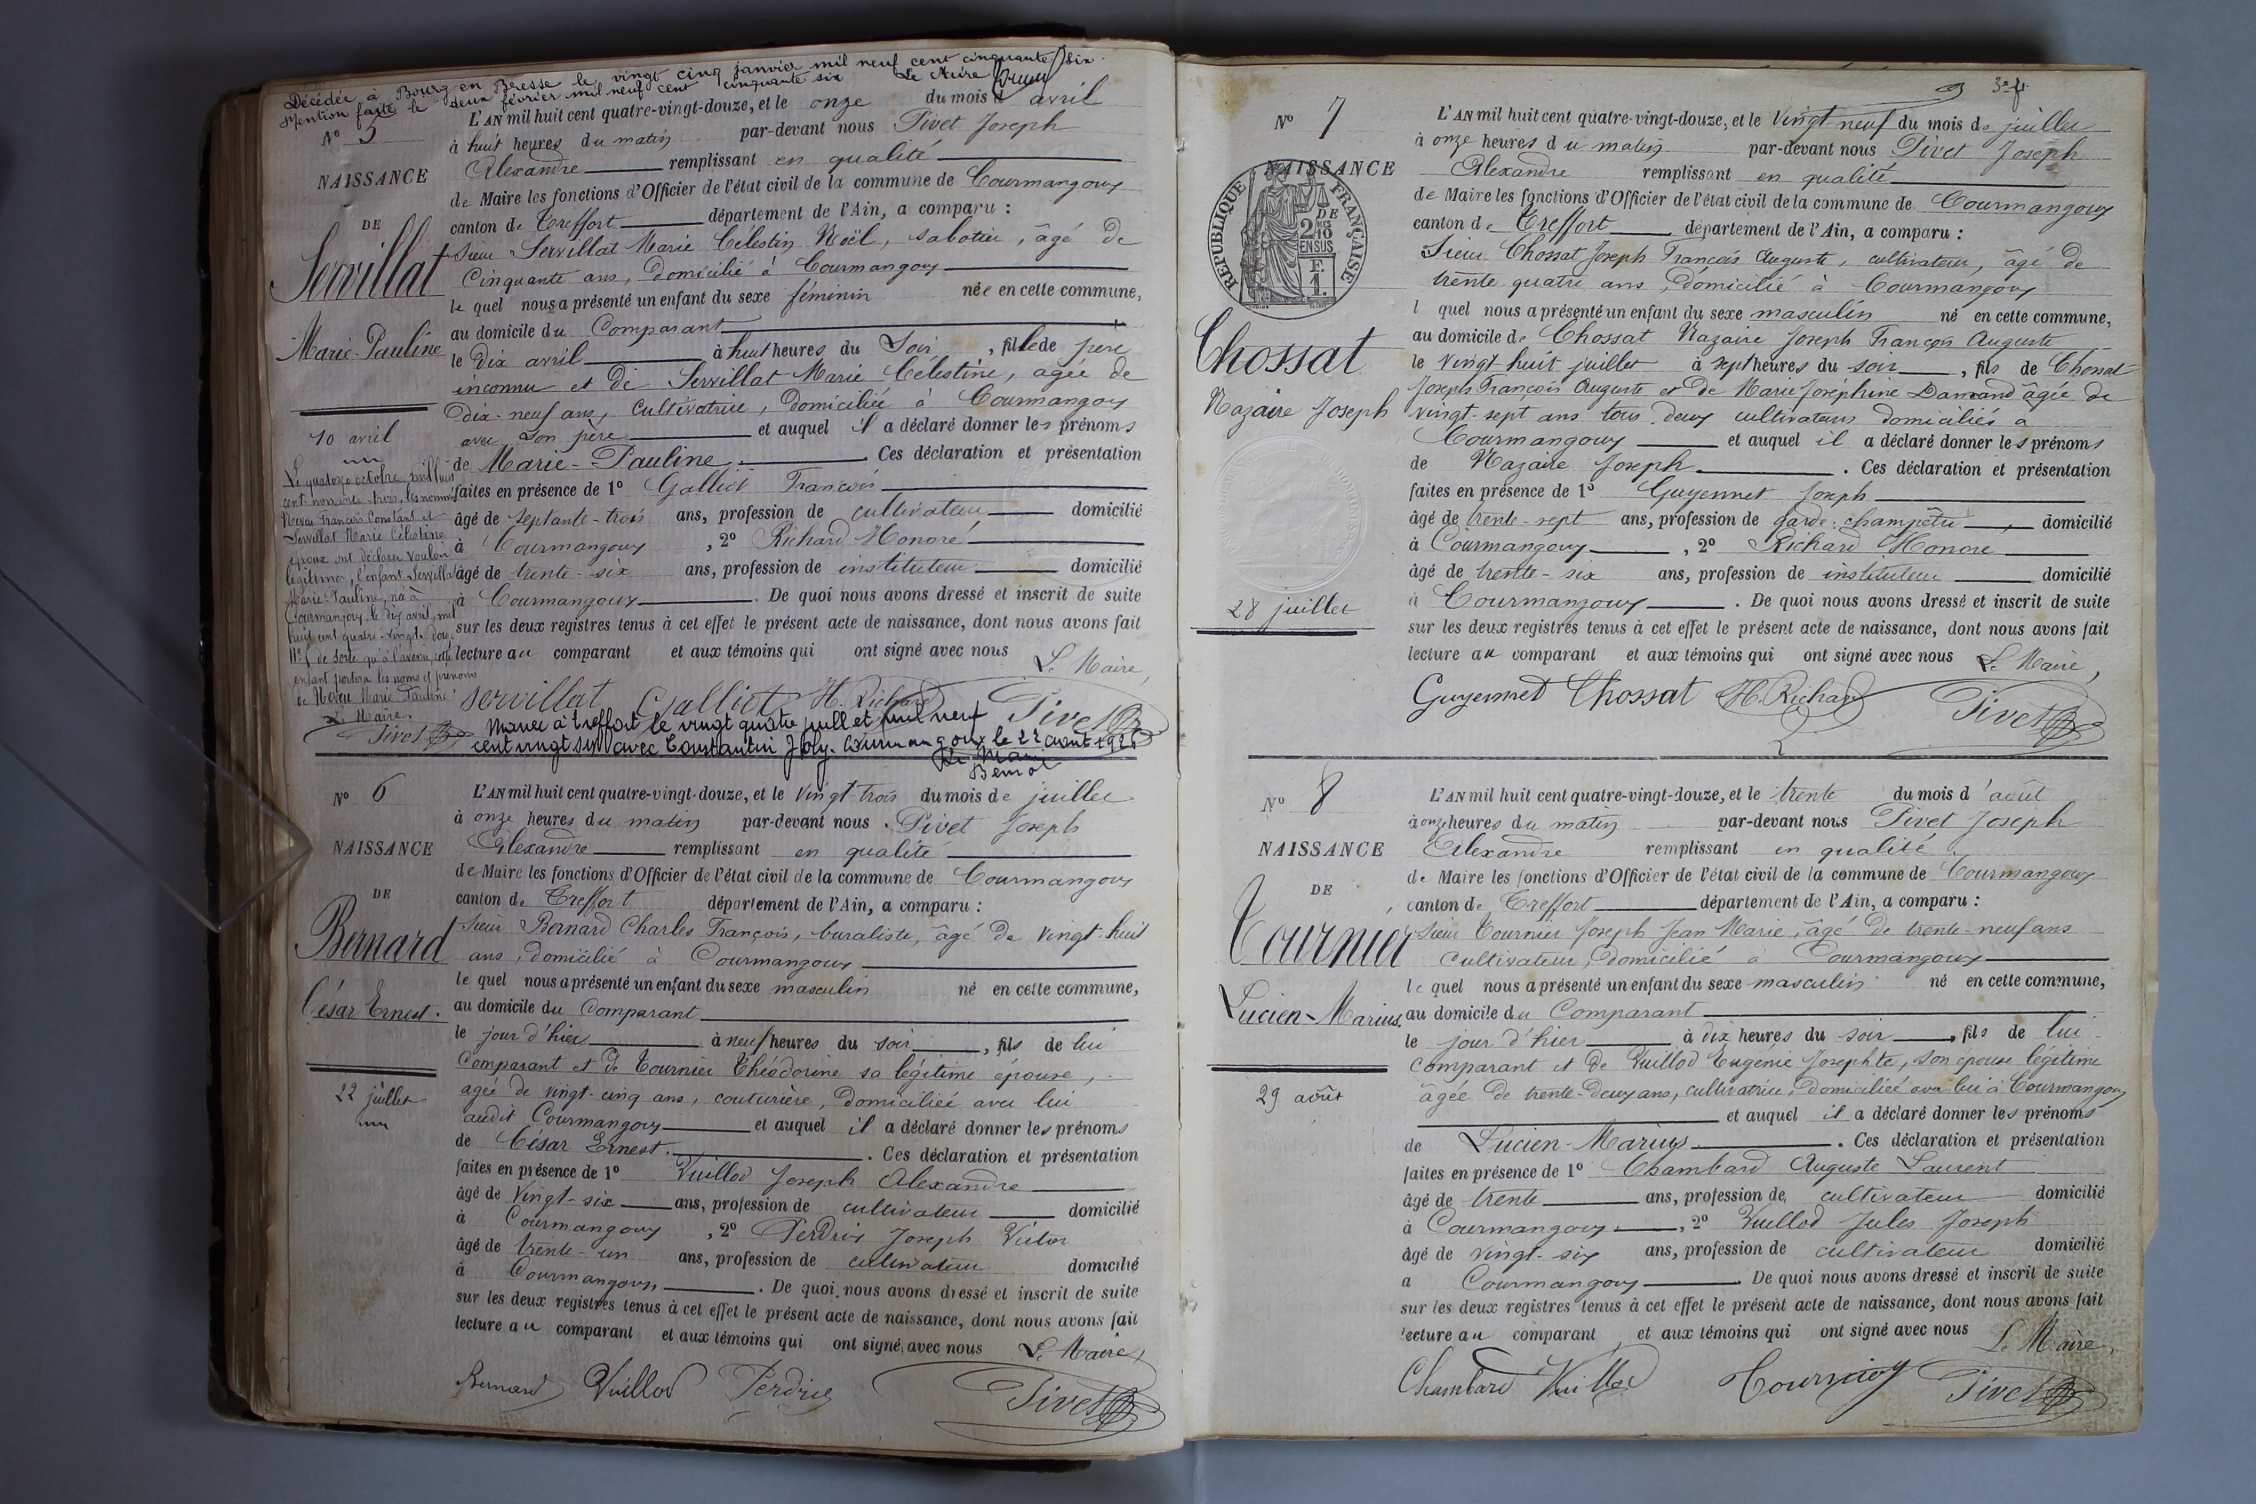 Décédée à Bourg en Bresse le vingt cinq janvier mil neuf cent cinquante six.
Mention faite le deux février mil neuf cent cinquante six Le Maire
N° 5
NAISSANCE
DE
Servillat
Marie-Pauline
10 avril
Le quatorze octobre mil huit
cent nonante trois, les nommés
Neveu François Constant et
Servillat Marie Célestine
époux ont déclaré vouloir
légitimer, l'enfant Servillat
Marie-Pauline, né à
Courmangoux le dix avril mil
huit cent quatre-vingt-douze
N° 5 de sorte qu'à l'avenir cette
enfant portera les noms et prénoms
de Neveu Marie Pauline.
Le Maire,
Pivet
L'AN mil huit cent quatre-vingt-douze, et le onze du mois d' avril
à huit heures du matin par-devant nous Pivet Joseph
Alexandre remplissant en qualité
de Maire les fonctions d'Officier de l'état civil de la commune de Courmangoux
canton de Treffort département de l'Ain, a comparu :
Sieur Servillat Marie Célestin Noël, sabotier, âgé de
Cinquante ans, domicilié à Courmangoux
le quel nous a présenté un enfant du sexe féminin née en cette commune,
au domicile du Comparant
le dix avril à huit heures du Soir, fille de père
inconnu et de Servillat Marie Célestine, âgée de
dix-neuf ans, Cultivatrice, domiciliée à Courmangoux
avec son père et auquel il a déclaré donner les prénoms
de Marie-Pauline. Ces déclaration et présentation
faites en présence de 1° Galliot François
âgé de septante-trois ans, profession de cultivateur domicilié
à Courmangoux, 2° Richard Honoré
âgé de trente-six ans, profession de instituteur domicilié
à Courmangoux. De quoi nous avons dressé et inscrit de suite
sur les deux registres tenus à cet effet le présent acte de naissance, dont nous avons fait
lecture au comparant et aux témoins qui ont signé avec nous
Le Maire,
Servillat Galliot H. Richard Pivet
Mariée à Treffort le vingt quatre juillet mil neuf
cent vingt six avec Constantin Joly. Courmangoux le 22 août 1926
Le Maire
N° 6
NAISSANCE
DE
Bernard
César Ernest.
22 juillet
L'AN mil huit cent quatre-vingt-douze, et le vingt-trois du mois de juillet
à onze heures du matin par-devant nous Pivet Joseph
Alexandre remplissant en qualité
de Maire les fonctions d'Officier de l'état civil de la commune de Courmangoux
canton de Treffort département de l'Ain, a comparu :
Sieur Bernard Charles François, buraliste, âgé de vingt-huit
ans, domicilié à Courmangoux
le quel nous a présenté un enfant du sexe masculin né en cette commune,
au domicile du Comparant
le jour d'hier à neuf heures du soir, fils de lui
Comparant et de Tournier Théodorine sa légitime épouse,
agée de vingt-cinq ans, couturière, domiciliée avec lui
audit Courmangoux et auquel il a déclaré donner les prénoms
de César Ernest. Ces déclaration et présentation
faites en présence de 1° Vuillod Joseph Alexandre
âgé de vingt-six ans, profession de cultivateur domicilié
à Courmangoux, 2° Perdrix Joseph Victor
âgé de trente-un ans, profession de cultivateur domicilié
à Courmangoux, . De quoi nous avons dressé et inscrit de suite
sur les deux registres tenus à cet effet le présent acte de naissance, dont nous avons fait
lecture au comparant et aux témoins qui ont signé avec nous Le Maire,
Bernard Vuillod Perdrix Pivet
N° 7
NAISSANCE
REPUBLIQUE FRANÇAISE
2 DES 10
EN SUS
F. 1.
Chossat
Nazaire Joseph
28 juillet
L'AN mil huit cent quatre-vingt-douze, et le vingt neuf du mois de juillet
à onze heures du matin par-devant nous Pivet Joseph
Alexandre remplissant en qualité
de Maire les fonctions d'Officier de l'état civil de la commune de Courmangoux
canton de Treffort département de l'Ain, a comparu :
Sieur Chossat Joseph François Auguste, cultivateur, âgé de
trente quatre ans, domicilié à Courmangoux
l quel nous a présenté un enfant du sexe masculin né en cette commune,
au domicile de Chossat Nazaire Joseph François Auguste
le vingt huit juillet à sept heures du soir, fils de Chossat
Joseph François Auguste et de Marie Joséphine Damand âgée de
vingt-sept ans tous deux cultivateurs domiciliés à
Courmangoux et auquel il a déclaré donner les prénoms
de Nazaire Joseph. Ces déclaration et présentation
faites en présence de 1° Guyennet Joseph
âgé de trente-sept ans, profession de garde-champêtre, domicilié
à Courmangoux, 2° Richard Honoré
âgé de trente-six ans, profession de instituteur domicilié
à Courmangoux. De quoi nous avons dressé et inscrit de suite
sur les deux registres tenus à cet effet le présent acte de naissance, dont nous avons fait
lecture au comparant et aux témoins qui ont signé avec nous Le Maire,
Guyennet Chossat H. Richard Pivet
N° 8
NAISSANCE
DE
Tournier
Lucien-Marius.
29 août
L'AN mil huit cent quatre-vingt-douze, et le trente du mois d'août
à onze heures du matin par-devant nous Pivet Joseph
Alexandre remplissant en qualité
de Maire les fonctions d'Officier de l'état civil de la commune de Courmangoux
canton de Treffort département de l'Ain, a comparu :
Sieur Tournier Joseph Jean Marie, âgé de trente-neuf ans
Cultivateur, domicilié à Courmangoux
le quel nous a présenté un enfant du sexe masculin né en cette commune,
au domicile du Comparant
le jour d'hier à dix heures du soir, fils de lui
comparant et de Vuillod Eugénie Josephte, son épouse légitime
âgée de trente-deux ans, cultivatrice, domiciliée avec lui à Courmangoux
et auquel il a déclaré donner les prénoms
de Lucien-Marius. Ces déclaration et présentation
faites en présence de 1° Chambard Auguste Laurent
âgé de trente ans, profession de cultivateur domicilié
à Courmangoux, 2° Vuillod Jules Joseph
âgé de vingt-six ans, profession de cultivateur domicilié
a Courmangoux. De quoi nous avons dressé et inscrit de suite
sur les deux registres tenus à cet effet le présent acte de naissance, dont nous avons fait
lecture au comparant, et aux témoins qui ont signé avec nous Le Maire,
Chambard Vuillod Tournier Pivet